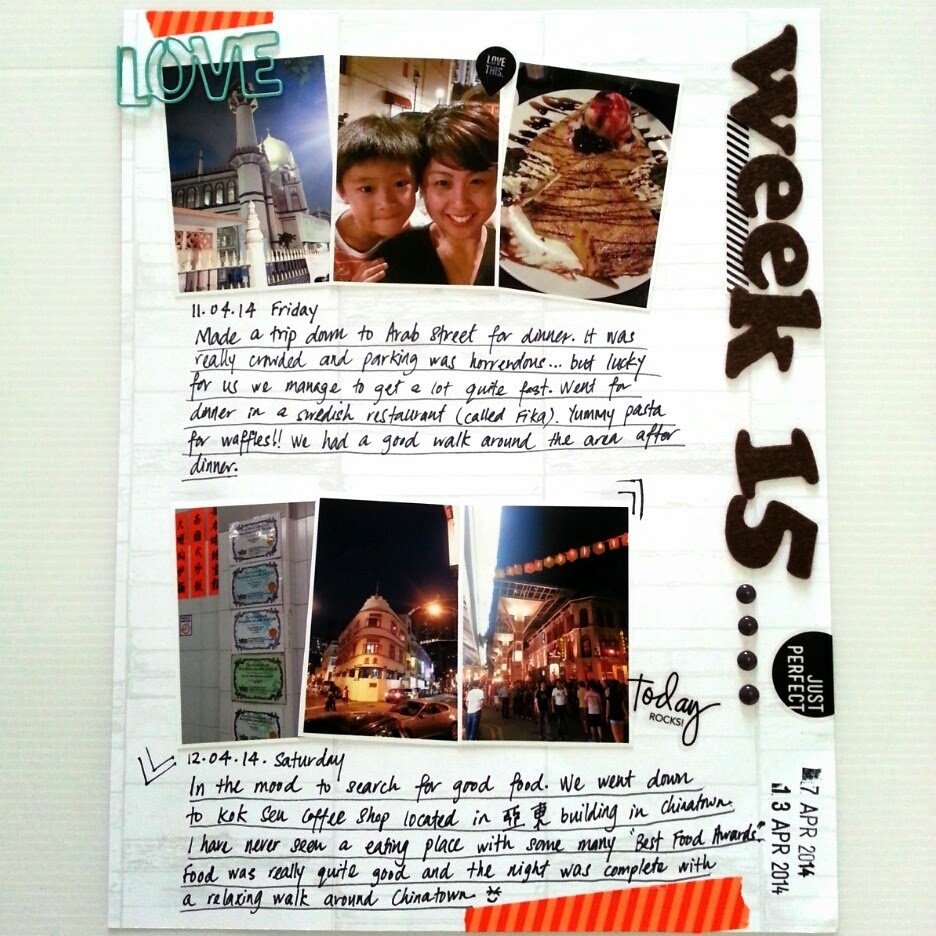 LOVE
LOVE
THIS.
week 15
11.04.14 Friday
Made a trip down to Arab Street for dinner. It was
really crowded and parking was horrendous... but lucky
for us we manage to get a lot quite fast. Went for
dinner in a swedish restaurant (called Fika). Yummy pasta
for waffles!! We had a good walk around the area after
dinner.
JUST
PERFECT
today
ROCKS!
7 APR 2014
13 APR 2014
12.04.14. Saturday
In the mood to search for good food. We went down
to Kok Sen Coffee Shop located in 亞東 building in Chinatown.
I have never seen a eating place with some many "Best Food Awards"
Food was really quite good and the night was complete with
a relaxing walk around Chinatown